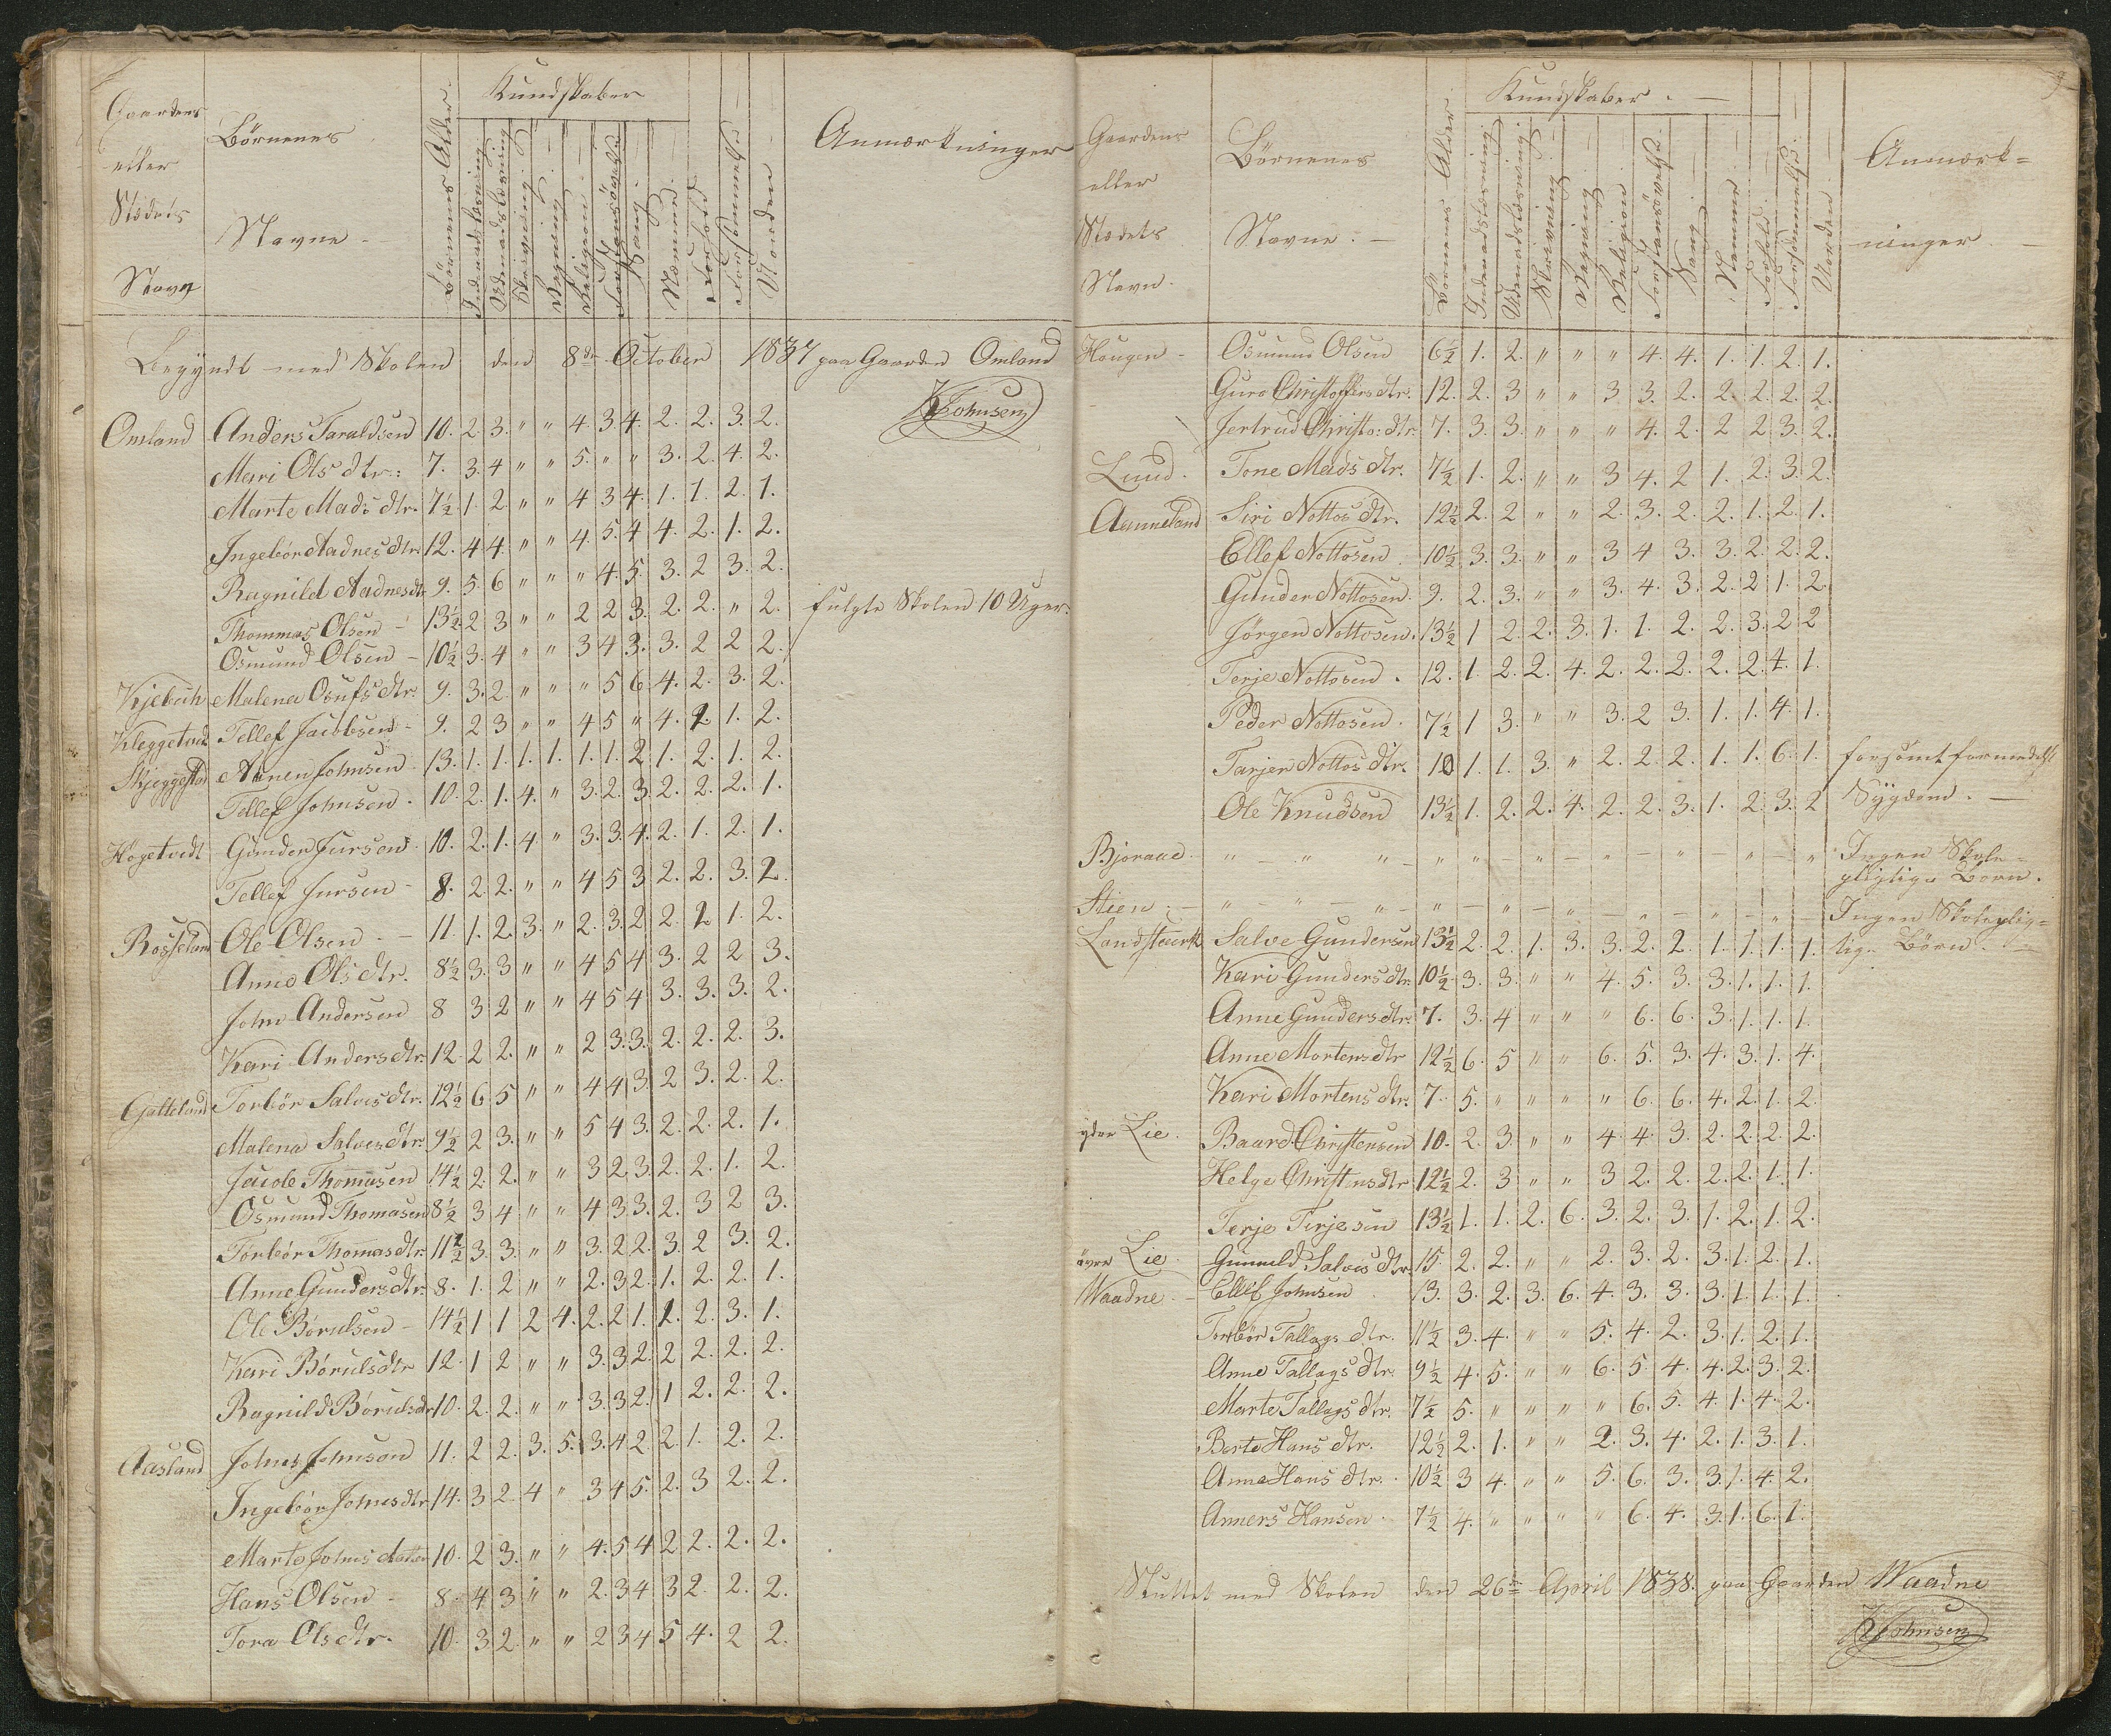 Gaardens eller Stædets Navn
Børnenes Navne
Børnenes Alder
Kundskaber
Indenadslæsning
Udenadslæsning
Skrivning
Regning
Religion
Forstandsøvelse
Sang
Nemme
Forhold
Forsømmelse
Orden
Anmærkninger
Begyndt med Skolen den 8de October 1837 paa Gaarden Omland
KJohnsen
Omland Anders Taraldsen 10. 2 3. " " 4. 3 4. 2. 2. 3. 2.
Mari Ols dtr: 7. 3. 4 " " 5. " " 3. 2. 4. 2.
Marte Mads dtr. 7½ 1. 2 " " 4 3 4. 1. 1. 2. 1.
Ingebör Aadnes dtr. 12. 4 4. " " 4. 5. 4 4. 2. 1. 2.
Ragnild Aadnes dtr 9. 5. 6 " " " 4. 5. 3. 2 3. 2.
Thommas Olsen 13½ 2 3 " " 2 2 3. 2. 2. " 2. fulgte Skolen 10 Uger.
Osmund Olsen 10½ 3. 4 " " 3 4 3. 3. 2 2 2.
Kjebuh Malena Osufs dtr. 9. 3. 2. " " " 5 6. 4. 2. 3. 2.
Kleggetved Tellef Jacobsen 9. 2 3 " " 4 5 " 4. 2. 1. 2.
Skjeggestad Annen Johnsen 13. 1. 1. 1. 1. 1. 1. 2 1. 2. 1. 2.
Tellef Johnsen. 10. 2. 1. 4. " 3. 2. 3. 2. 2. 2. 1.
Hogetvedt Gunder Jursen 10. 2. 1. 4. " 3. 3. 4. 2. 1. 2. 1.
Tellef Jursen 8. 2 2. " " 4 5 3 2. 2. 3. 2.
Rosseland Ole Olsen 11. 1. 2. 3. " 2. 3. 2 2. 2 1. 2.
Anne Ols dtr. 8½ 3. 3 " " 4 5 4 3. 2 2 3.
John Andersen 8 3 2 " " 4 5 4 3. 3. 3. 2.
Kari Anders dtr. 12. 2 2. " " 2 3. 3. 2. 2. 2. 3.
Galteland Torbör Salves dtr. 12½ 6 5 " " 4 4 3 2 3. 2. 2.
Malena Salves dtr. 9½ 2 3. " " 5 4 3. 2. 2. 2. 1.
Jacob Thomasen 14½ 2. 2. " " 3 2. 3. 2. 2. 1. 2.
Osmund Thomasen 8½ 3 4 " " 4 3 3. 2. 3 2 3.
Torbör Thomasdtr. 11½ 3. 3. " " 3. 2 2. 3. 2 3. 2.
Anne Gunders dtr. 8. 1. 2 " " 2. 3 2. 1. 2. 2. 1.
Ole Börulsen 14½ 1 1 2 4. 2. 2 1. 1. 2. 3. 1.
Kari Börulsdtr 12. 1 2 " " 3. 3 2. 2 2. 2. 2.
Ragnild Börulsdtr 10. 2. 2. " " 3. 3 2. 1 2. 2. 2.
Aasland Johnes Johnson 11. 2 2. 3. 5. 3. 4 2. 2. 1. 2. 2.
Ingebör Johnesdtr 14. 3 2. 4 " 3 4 5. 2. 3 2. 2.
Marte Johns datter 10. 2 3. " " 4. 5 4 2 2. 2. 2.
Hans Olsen 8. 4 3 " " 2. 3 4 3 2. 2. 2.
Tora Ols dtr. 10. 3 2. " " 2 3 4 5 4. 2 2.
Gaardens eller Stædets Navn.
Børnenes Navne.
Børnenes Alder
Kundskaber.
Indenadslæsning
Udenadslæsning
Skrivning
Regning
Religion
Forstandsøvelse
Sang
Nemme
Forhold
Forsømmelse
Orden
Anmærkninger
Haugen Osmund Olsen 6½ 1. 2. " " " 4. 4. 1. 1. 2. 1.
Guro Christoffers dtr. 12. 2. 3 " " 3 3. 2. 2. 2. 2. 2.
Jertrud Christo: dtr 7. 3. 3. " " " 4. 2. 2 2 3. 2.
Lund. Tone Mads dtr. 7½ 1. 2. " " 3 4. 2 1. 2. 3. 2.
Aanneland Siri Nottos dtr. 12½ 2. 2 " " 2. 3. 2. 2. 1. 2. 1.
Ellef Nottosen 10½ 3. 3. " " 3 4 3. 3. 2. 2. 2.
Gunder Nottosen. 9. 2. 3. " " 3. 4. 3. 2. 2 1. 2
Jörgen Nottosen. 13½ 1 2. 2. 3. 1. 1. 2. 2. 3. 2 2
Terje Nottosen. 12. 1. 2. 2. 4. 2. 2. 2. 2. 2. 4. 1.
Peder Nottosen. 7½ 1 3. " " 3. 2 3. 1. 1. 4. 1.
Tarjer Nottos dtr. 10 1. 1. 3. " 2. 2. 2. 1. 1. 6. 1. forsömt formedelst
Ole Knudsen 13½ 1. 2. 2. 4. 2. 2. 3. 1. 2. 3. 2 Sygdom.
Bjoraae. " " " " " " " " " " Ingen Skole-
pligtige Børn.
Stien. " " " " " " " " " Ingen Skoleplig-
Landsteuerk Salve Gundersen 13½ 2. 2. 1. 3. 3. 2. 2. 1. 1. 1. 1. tige Børn.
Kari Gunders dtr. 10½ 3. 3. " " 4. 5. 3. 3. 1. 1. 1.
Anne Gundersdtr. 7. 3. 4 " " " 6. 6. 3. 1. 1. 1.
Anne Mortensdtr 12½ 6. 5 " " 6. 5. 3. 4. 3. 1. 4.
Kari Mortens dtr. 7. 5. " " " " 6. 6. 4. 2. 1. 2.
yder Lie. Baard Christensen 10. 2. 3. " " 4. 4. 3. 2. 2. 2. 2.
Helge Christensdtr 12½ 2. 3 " " 3 2. 2. 2. 2. 1. 1.
Terje Terjesen 13½ 1. 1. 2. 6. 3. 2. 3. 1. 2. 1. 2.
övre Lie. Gunnild Salves dtr. 15 2. 2. " " 2. 3. 2. 3. 1. 2. 1.
Waadne. Ellef Johnsen 13. 3. 2. 3. 6. 4. 3. 3. 3. 1. 1. 1.
Torbör Tallags dtr. 11½ 3. 4. " " 5. 4. 2. 3. 1. 2. 1.
Anne Tallags dtr. 9½ 4. 5. " " 6. 5 4. 4. 2. 3. 2.
Marte Tallags dtr. 7½ 5. " " " " 6. 5. 4. 1. 4. 2.
Berte Hans dtr. 12½ 2. 1. " " 2. 3. 4. 2. 1. 3. 1.
Anne Hans dtr. 10½ 3 4. " " 5. 6. 3. 3. 1. 4. 2.
Anners Hansen. 7½ 4. " " " " 6. 4. 3. 1. 6. 1.
Sluttet med Skolen den 26de April 1838. paa Gaarden Waadne
KJohnsen